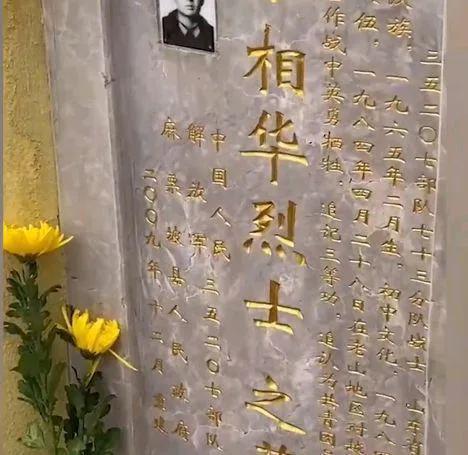 三五二〇七部队七十三分队战士，山东省
汉族，一九六五年二月生，初中文化，一九八
伍，一九八四年四月二十八日在老山地区对越
作战中英勇牺牲，追记三等功，追认为共青团
相华烈士之
中国人民三五二〇七部队
解放军
麻栗坡县人民政府
二〇〇九年十二月重建